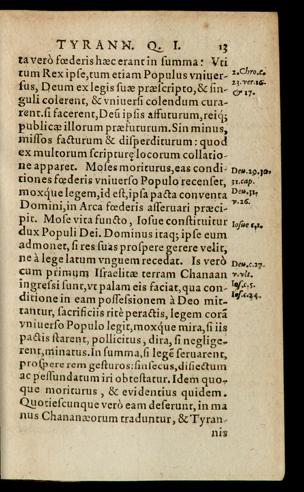 TYRANN. Q. I. 13
ta verò fœderis hæc erant in summa: Vti
tum Rex ipse, tum etiam Populus vniuer-
sus, Deum ex legis suæ præscripto, & sin-
guli colerent, & vniuersi colendum cura-
rent. si facerent, Deū ipsis affuturum, reiq;
publicæ illorum præfuturum. Sin minus,
missos facturum & disperditurum: quod
ex multorum scripturę locorum collatio-
ne apparet. Moses moriturus, eas condi
tiones fœderis vniuerso Populo recenset,
moxque legem, id est, ipsa pacta conventa
Domini, in Arca fœderis asseruari præci-
pit. Mose vita functo, Iosue constituitur
dux Populi Dei. Dominus itaq; ipse eum
admonet, si res suas prospere gerere velit,
ne à lege latum vnguem recedat. Is verò
cum primum Israelitæ terram Chanaan
ingressi sunt, vt palam eis faciat, qua con-
ditione in eam possessionem à Deo mit-
tantur, sacrificiis ritè peractis, legem corā
vniuerso Populo legit, moxque mira, si iis
pactis starent, pollicitus, dira, si neglige-
rent, minatus. In summa, si legē seruarent,
prospere rem gesturos: sin secus, disiectum
ac pessundatum iri obtestatur. Idem quo-
que moriturus, & evidentius quidem.
Quotiescunque verò eam deserunt, in ma
nus Chananæorum traduntur, & Tyran-
nis
2. Chro. c.
23. ver. 16.
& 17.
Deu. 29. 30.
31. cap.
Deu. 31.
v. 26.
Iosue 1, 1.
Deu. c. 27.
v. vlt.
Ios. c. 5.
Ios. c. 24.